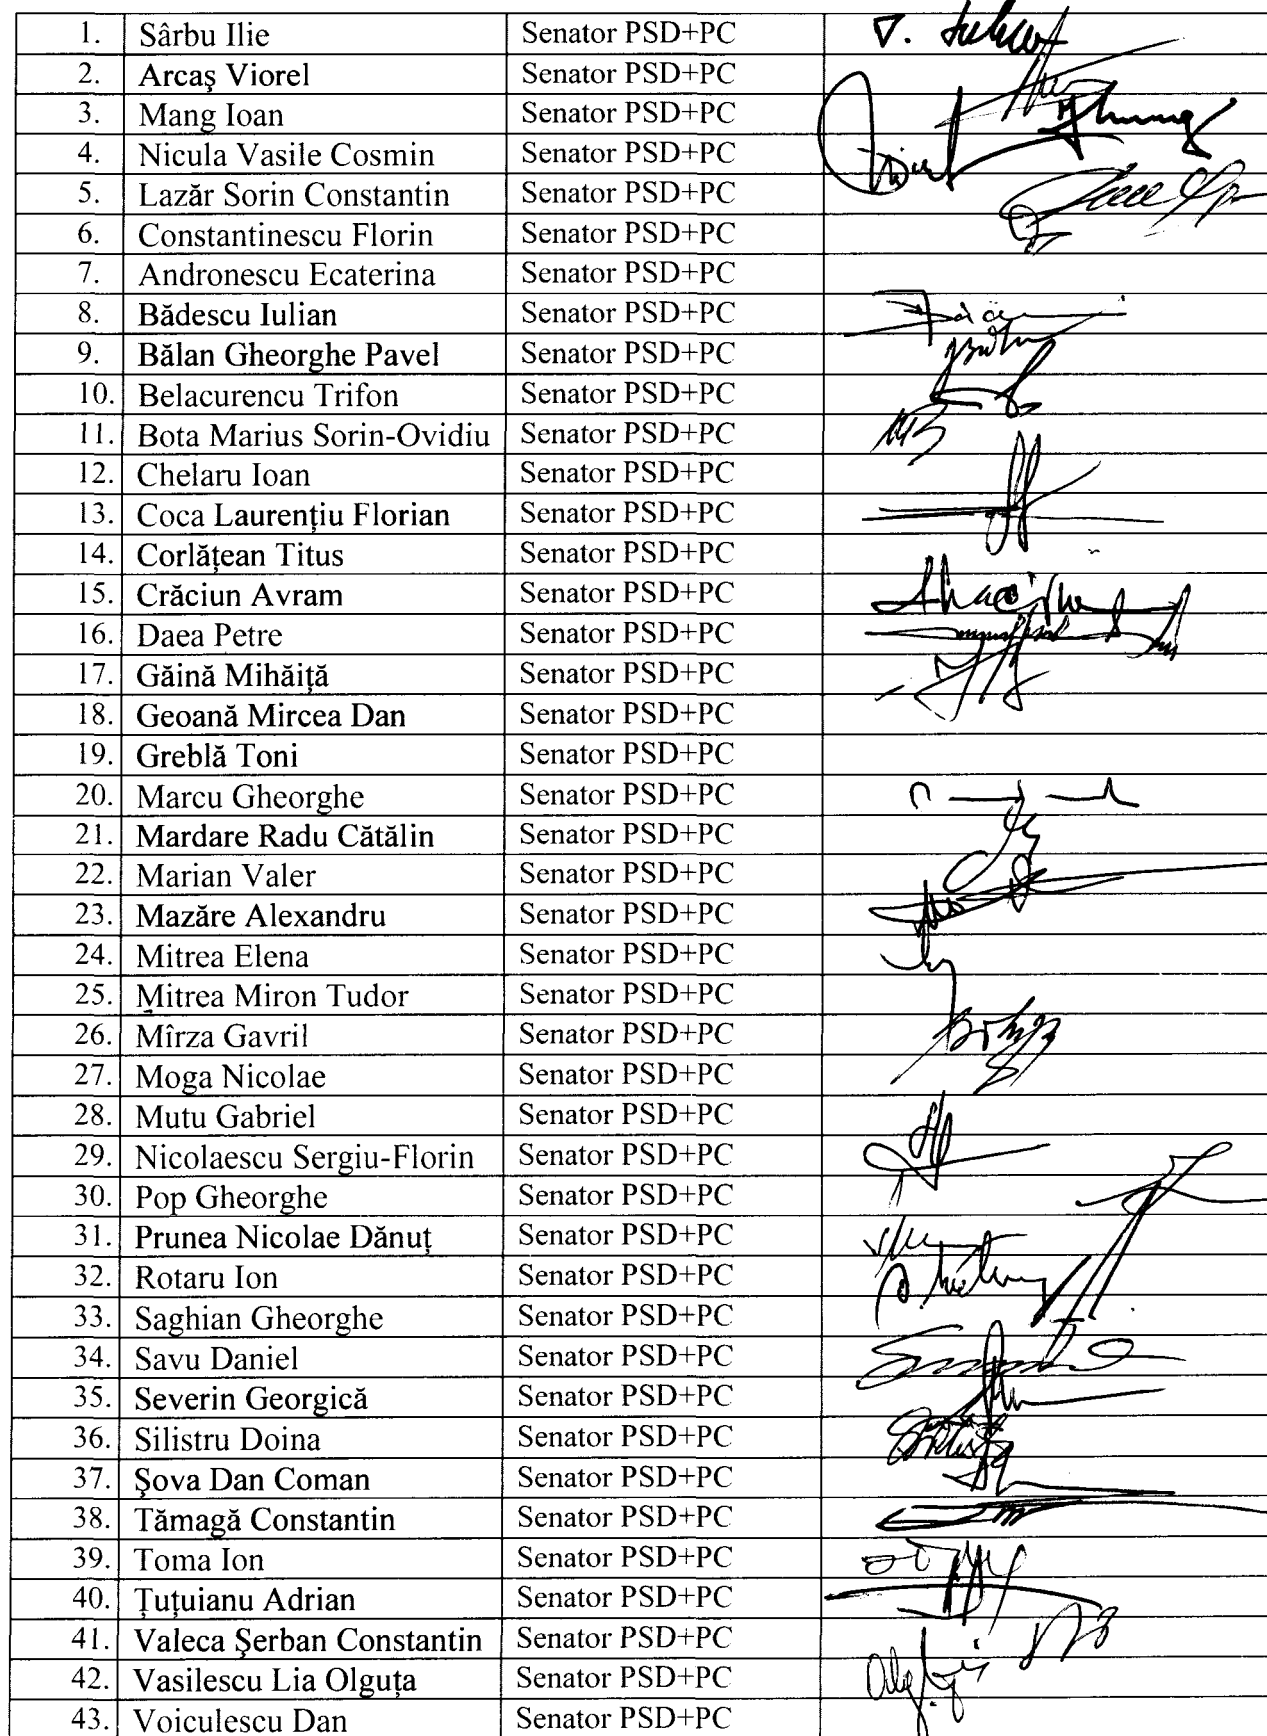 1. Sârbu Ilie Senator PSD+PC
2. Arcaş Viorel Senator PSD+PC
3. Mang Ioan Senator PSD+PC
4. Nicula Vasile Cosmin Senator PSD+PC
5. Lazăr Sorin Constantin Senator PSD+PC
6. Constantinescu Florin Senator PSD+PC
7. Andronescu Ecaterina Senator PSD+PC
8. Bădescu Iulian Senator PSD+PC
9. Bălan Gheorghe Pavel Senator PSD+PC
10. Belacurencu Trifon Senator PSD+PC
11. Bota Marius Sorin-Ovidiu Senator PSD+PC
12. Chelaru Ioan Senator PSD+PC
13. Coca Laurenţiu Florian Senator PSD+PC
14. Corlăţean Titus Senator PSD+PC
15. Crăciun Avram Senator PSD+PC
16. Daea Petre Senator PSD+PC
17. Găină Mihăiţă Senator PSD+PC
18. Geoană Mircea Dan Senator PSD+PC
19. Greblă Toni Senator PSD+PC
20. Marcu Gheorghe Senator PSD+PC
21. Mardare Radu Cătălin Senator PSD+PC
22. Marian Valer Senator PSD+PC
23. Mazăre Alexandru Senator PSD+PC
24. Mitrea Elena Senator PSD+PC
25. Mitrea Miron Tudor Senator PSD+PC
26. Mîrza Gavril Senator PSD+PC
27. Moga Nicolae Senator PSD+PC
28. Mutu Gabriel Senator PSD+PC
29. Nicolaescu Sergiu-Florin Senator PSD+PC
30. Pop Gheorghe Senator PSD+PC
31. Prunea Nicolae Dănuţ Senator PSD+PC
32. Rotaru Ion Senator PSD+PC
33. Saghian Gheorghe Senator PSD+PC
34. Savu Daniel Senator PSD+PC
35. Severin Georgică Senator PSD+PC
36. Silistru Doina Senator PSD+PC
37. Şova Dan Coman Senator PSD+PC
38. Tămagă Constantin Senator PSD+PC
39. Toma Ion Senator PSD+PC
40. Ţuţuianu Adrian Senator PSD+PC
41. Valeca Şerban Constantin Senator PSD+PC
42. Vasilescu Lia Olguţa Senator PSD+PC
43. Voiculescu Dan Senator PSD+PC